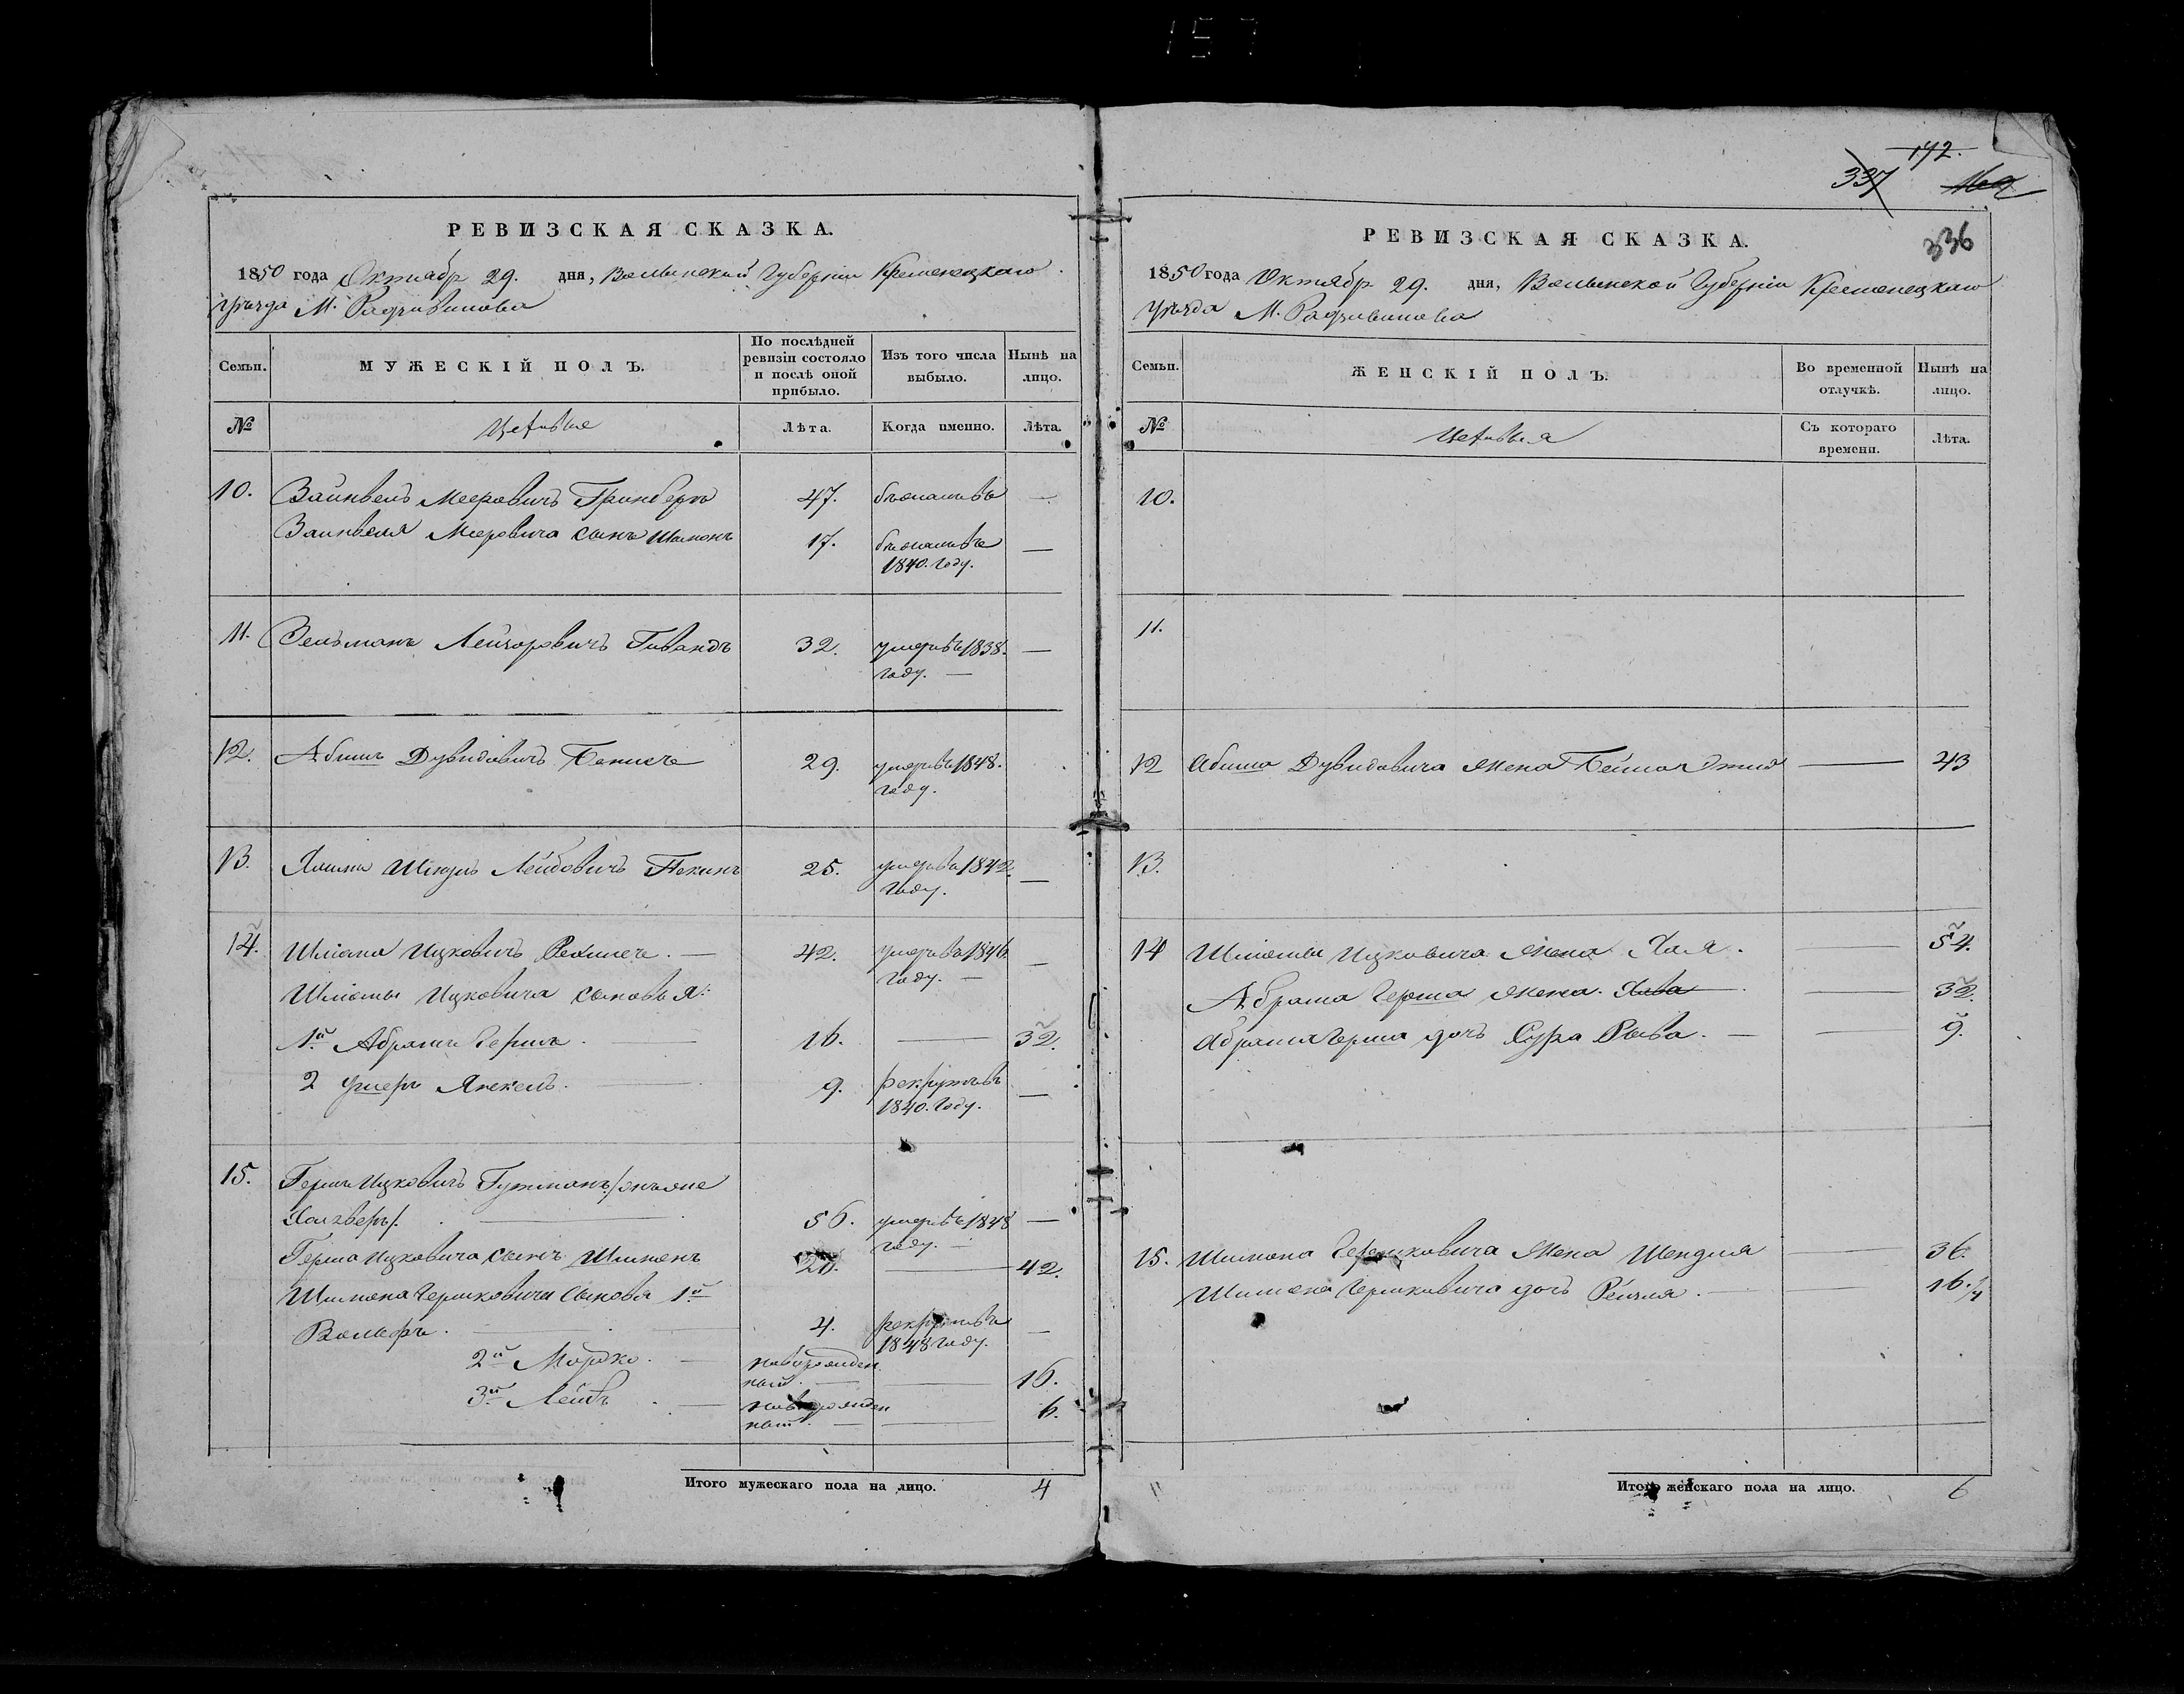 157
РЕВИЗСКАЯ СКАЗКА.
1850 года Октября 29. дня, Волынской Губернии Кременецкаго
уѣзда М. Радзивилова
Семьи.
МУЖЕСКІЙ ПОЛЪ.
По послѣдней ревизіи состояло и послѣ оной прибыло.
Изъ того числа выбыло.
Нынѣ на лицо.
№
Лѣта.
Когда именно.
Лѣта.
10. Зайнвель Мееровичъ Гринбергъ 47. —
Зайнвеля Мееровича сынъ Шимонъ 17. —
1840. году.
11. Зельманъ Лейзоровичъ 32. умеръ въ 1838. —
году. —
12. Абишъ Дувидовичъ 29. умеръ въ 1848.
году.
13. Лейбовичъ 25. умеръ въ 1842. —
году.
14. Шліома Ицковичъ 42. умеръ въ 1846. —
году. —
Шліомы Ицковича сыновья:
1й Абрамъ Гершъ. — 16. — 32.
2 Янкель. — 9. рекрутъ въ —
1840. году.
15. Гершъ Ицковичъ Гутманъ /онъ же
— 56. умеръ въ 1848 —
году. —
Герша Ицковича сынъ Шимонъ — 42.
Шимона Гершковича сыновья 1й
Вольфъ. — 4. рекрутъ въ —
1848 году.
2й Мордко. — новорожден
ный. — — 16.
3й Лейбъ. — новорожден
ный. — — 6.
Итого мужескаго пола на лицо. 4
192.
337
336
РЕВИЗСКАЯ СКАЗКА.
1850 года Октября 29. дня, Волынской Губерніи Кременецкаго
уѣзда М. Радзивилова
Семьи.
ЖЕНСКІЙ ПОЛЪ.
Во временной отлучкѣ.
Нынѣ на лицо.
№
Съ котораго времени.
Лѣта.
10.
11.
12 Абиша Дувидовича жена — 43
13.
14 Шліомы Ицковича жена Хая. — 54.
Абрама Герша жена. Хава — 32.
Абрама Герша дочь Сура Рыва. — 9.
15. Шимона Гершковича жена Шендля — 36.
Шимона Гершковича дочь Рейзля. — 16. 1/4
Итого женскаго пола на лицо. 6